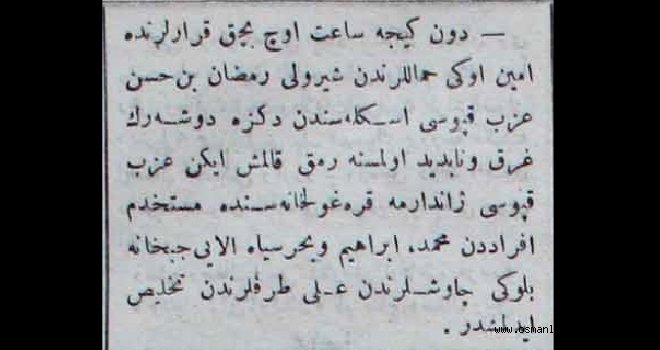 — دون كیجه ساعت اوچ بچق قرارلرنده
امین اوكی حماللرندن شیرولی رمضان بن حسن
عزب قپوسی اسكله‌سندن دكزه دوشه‌رك
غرق و ناپدید اولمسنه رمق قالمش ایكن عزب
قپوسی ژاندارمه قره‌غولخانه‌سنده مستخدم
افراددن محمد، ابراهیم و بحر سیاه الایی جبخانه
بلوكی چاوشلرندن علی طرفلرندن تخلیص
ایدلمشدر.
www.osmanl